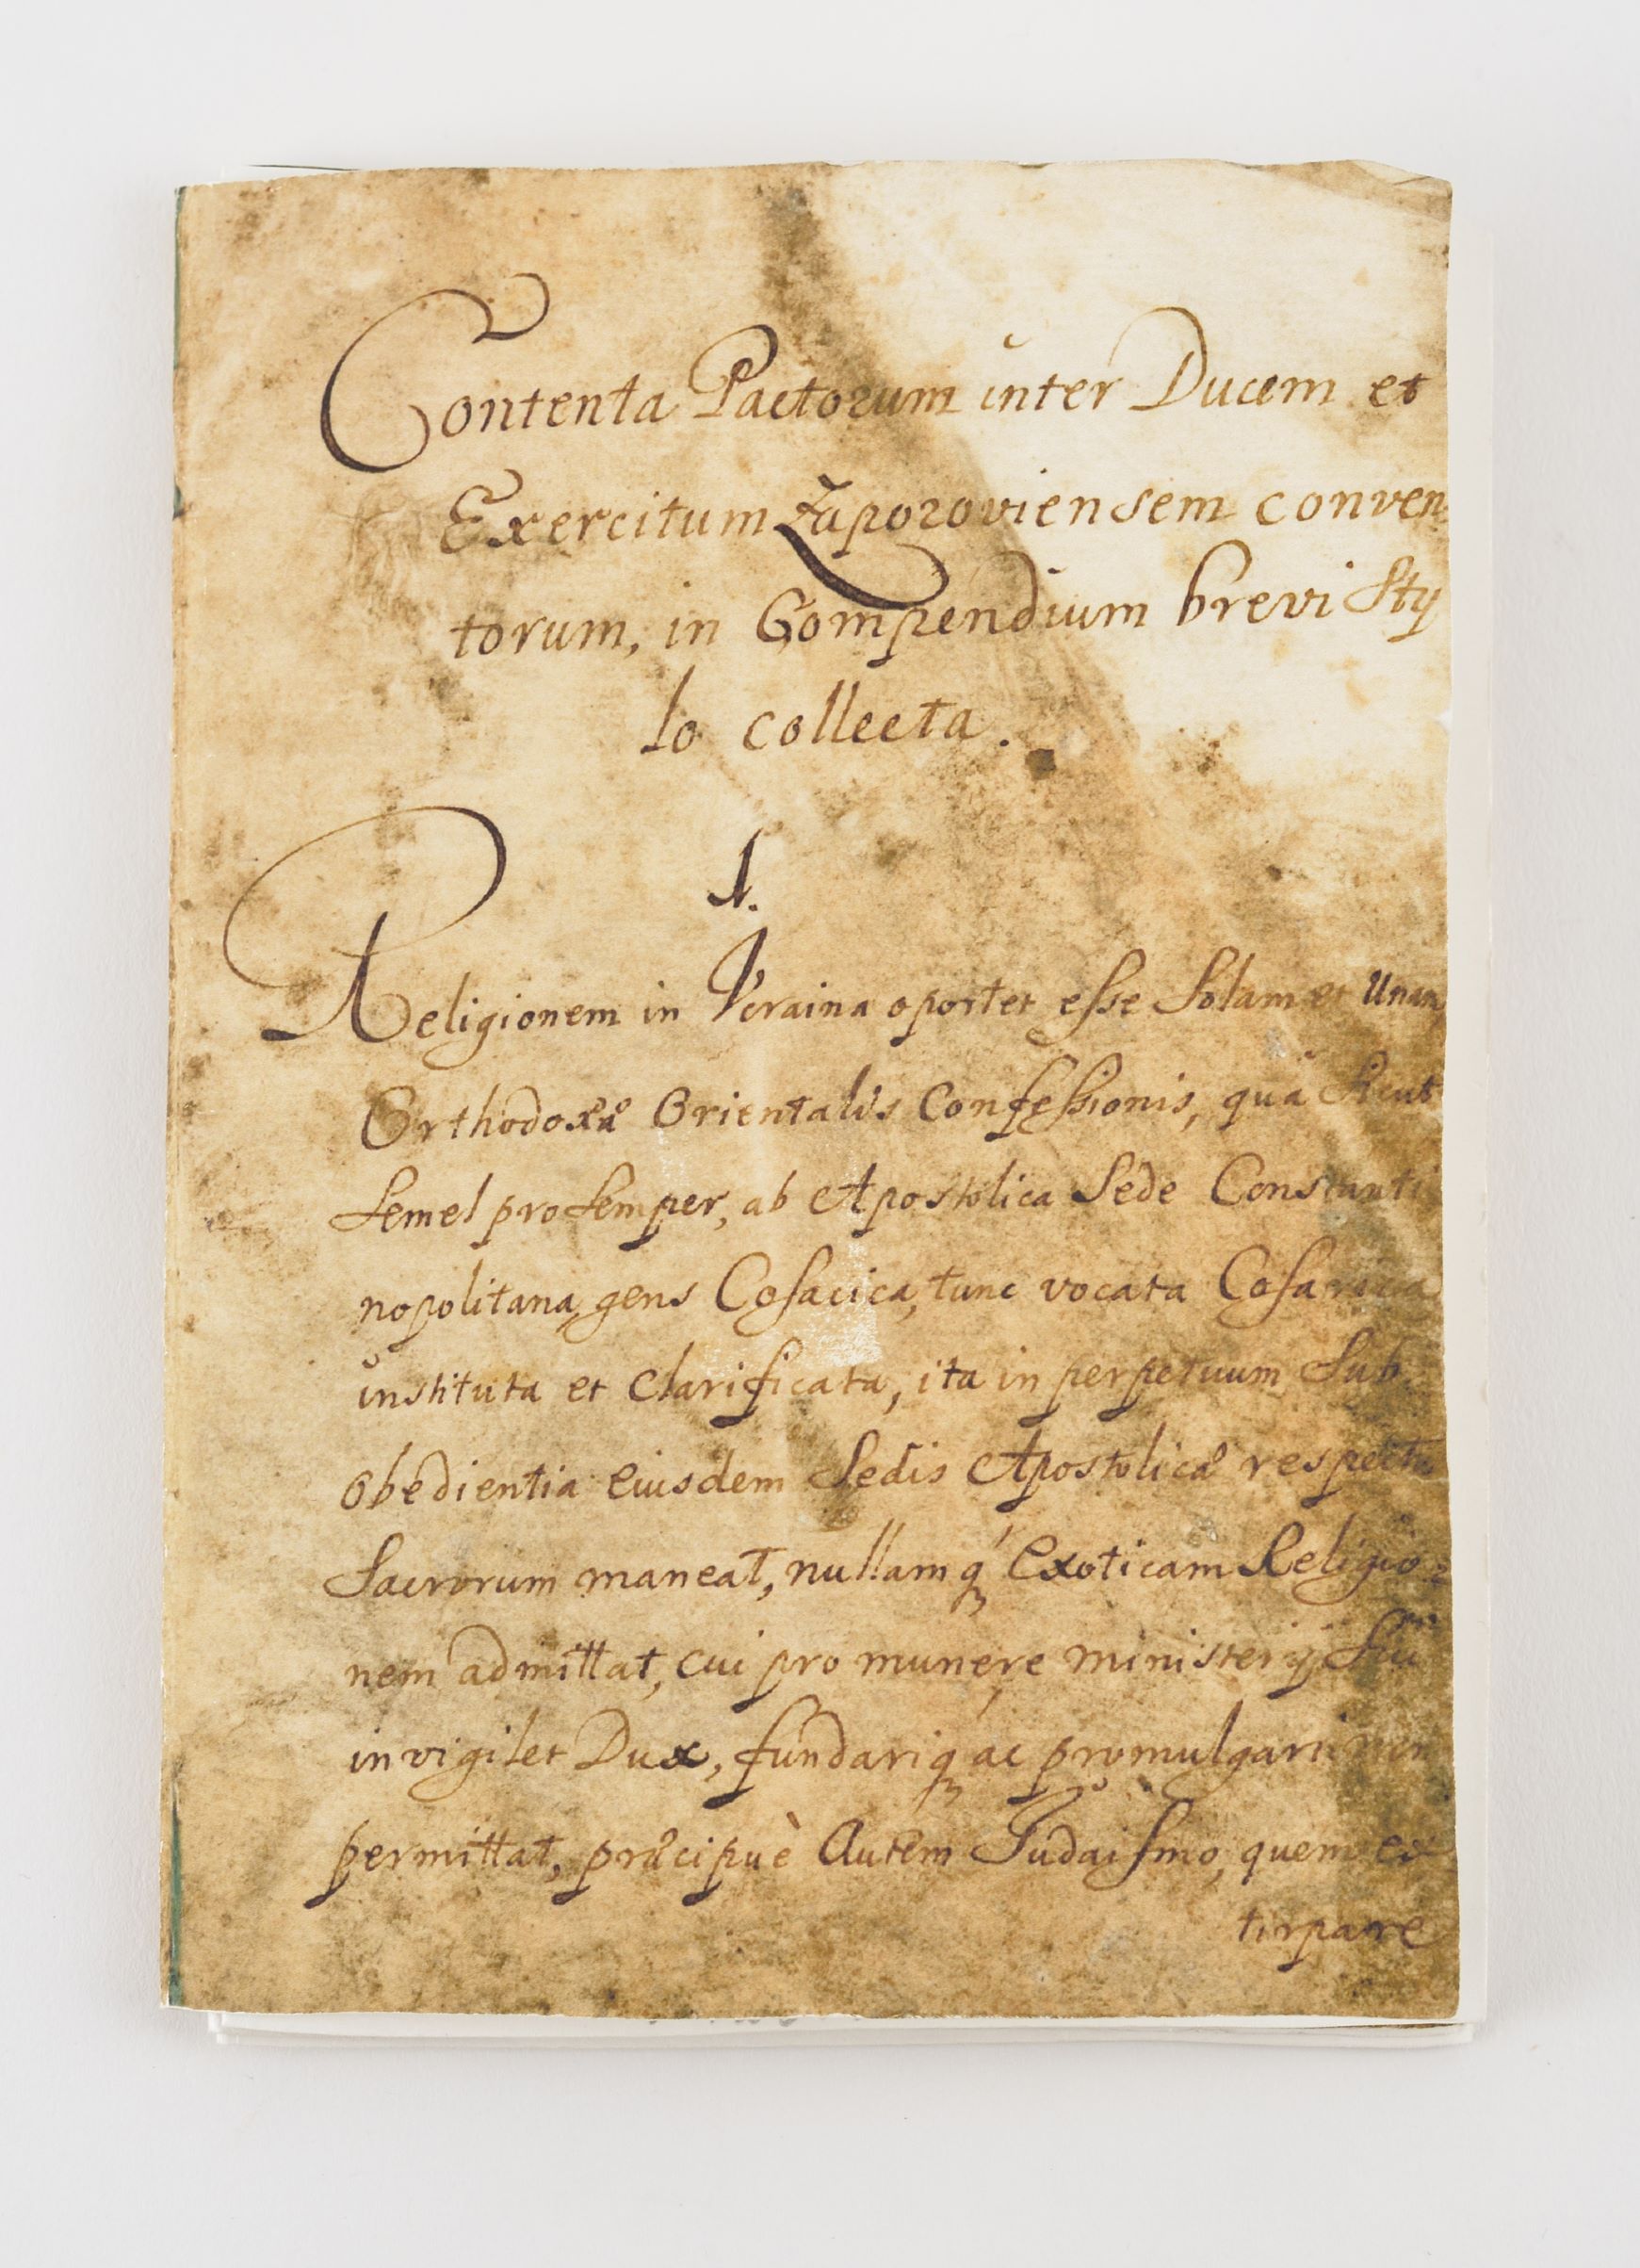 Contenta Pactorum inter Ducem et
Exercitum Zaporoviensem conven
torum, in Compendium brevi Sty
lo collecta.
1.
Religionem in Vcraina oportet esse Solam et Unam
Orthodoxæ Orientalis Confessionis, quâ Sicut
Semel pro Semper, ab Apostolica Sede Constanti
nopolitana, gens Cosacica, tunc vocata Cosarica
instituta et Clarificata, ita in perpetuum Sub
Obedientia Eiusdem Sedis Apostolicæ respectu
Sacrorum maneat, nullamq́ Exoticam Religio=
nem admittat, cui pro munere ministerij Sui
invigilet Dux, fundariq́ ac promulgari non
permittat, præcipuè Autem Iudaismo, quem ex
tirpare